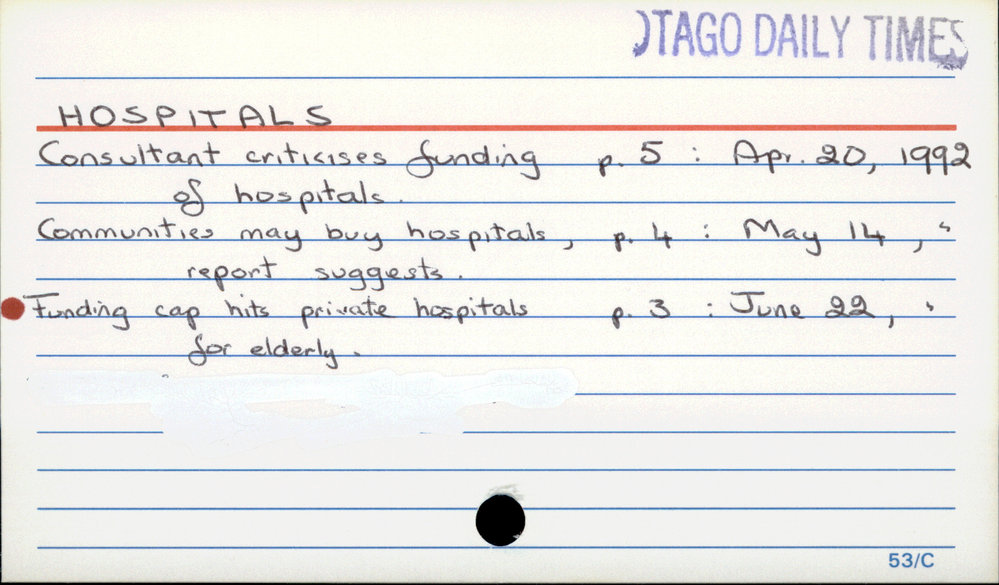 OTAGO DAILY TIMES
HOSPITALS
Consultant criticises funding p. 5 : Apr. 20, 1992
of hospitals.
Communities may buy hospitals, p. 4 : May 14, "
report suggests.
Funding cap hits private hospitals p. 3 : June 22, "
for elderly.
53/C